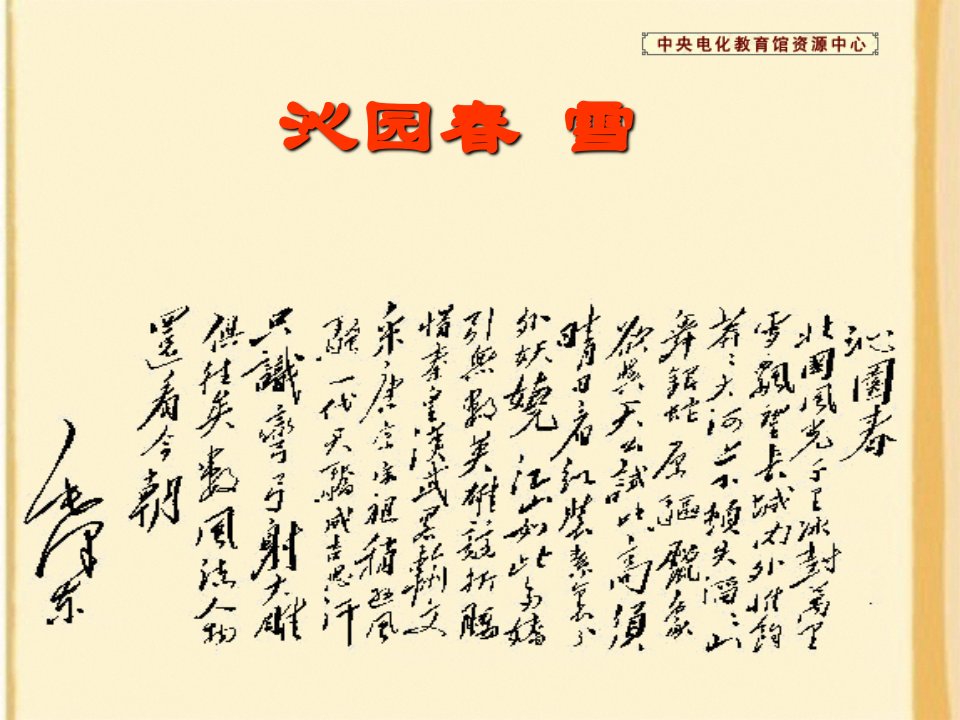 中央电化教育馆资源中心
沁园春 雪
沁園春
北國風光千里冰封萬里
雪飄望長城内外惟餘
莽〻大河上下頓失滔〻山
舞銀蛇原驅臘象
欲與天公試比高須
晴日看紅裝素裹分
外妖嬈江山如此多嬌
引無數英雄競折腰
惜秦皇漢武略輸文
采唐宗宋祖稍遜風
騷一代天驕成吉思汗
只識彎弓射大雕
俱往矣數風流人物
還看今朝
毛澤東